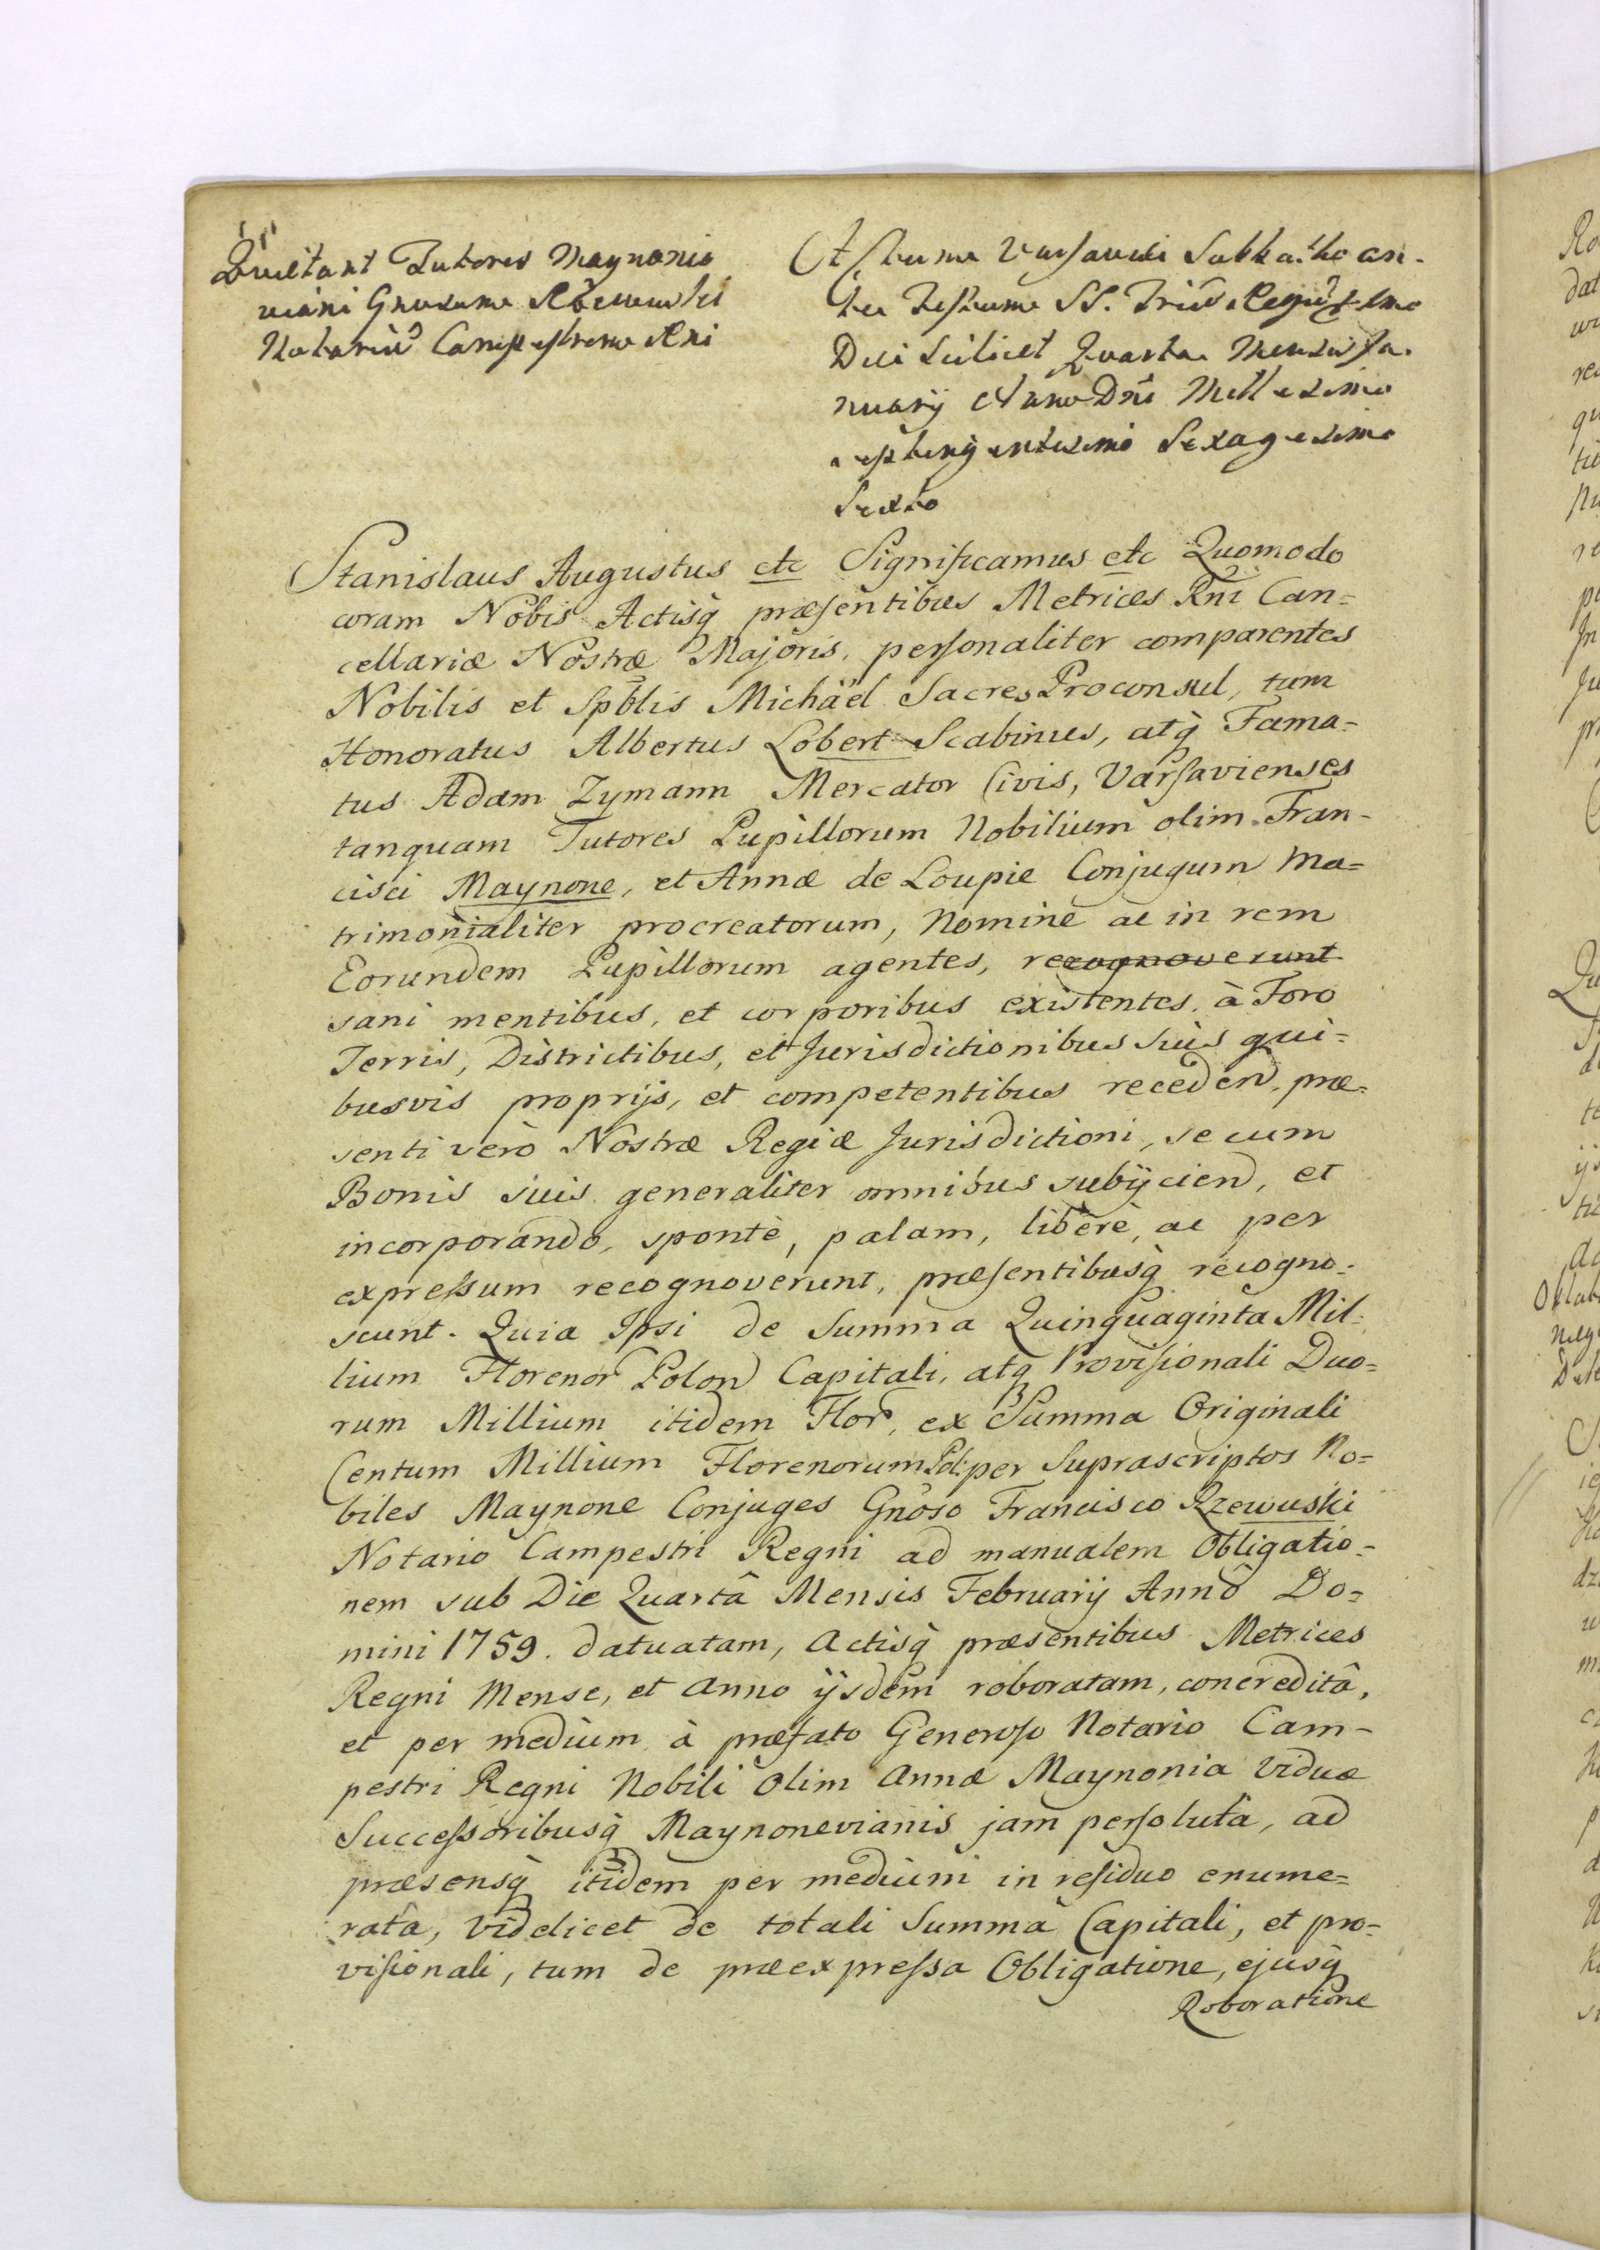 Quietant Tutores Maynonio
viani Gnosum Rzewuski
Notariũ Campestrem Rni
Actum Varsaviæ Sabbatho an-
te Festum SS. Triũ Regũ
Die Scilicet Quarta Mensis Ja-
nuarij Anno Dñi Millesimo
septingentesimo Sexagesimo
Sexto
Stanislaus Augustus etc Significamus etc Quomodo
coram Nobis Actisq̀ præsentibus Metrices Rñi Can=
cellariæ Nostræ Majoris, personaliter comparentes
Nobilis et Spblis Michäel Sacres Proconsul, tum
Honoratus Albertus Lobert Scabinus, atq̀ Fama-
tus Adam Zymann Mercator Civis, Varsavienses
tanquam Tutores Pupillorum Nobilium olim Fran-
cisci Maynone, et Annæ de Loupie Conjugum Ma=
trimonialiter procreatorum, Nomine ac in rem
Eorundem Pupillorum agentes, recognoverunt
sani mentibus, et corporibus existentes, à Foro
Terris, Districtibus, et Jurisdictionibus suis qui=
busvis proprijs, et competentibus receden, præ=
senti verò Nostræ Regiæ Jurisdictioni, se cum
Bonis suis generaliter omnibus subijcien, et
incorporando, spontè, palam, liberè, ac per
expressum recognoverunt, præsentibusq̀ recogno=
scunt. Quia Ipsi de Summa Quinquaginta Mil=
lium Florenor Polon Capitali, atq̀ Provisionali Duo=
rum Millium itidem Flor, ex Summa Originali
Centum Millium Florenorum Pol: per Suprascriptos No=
biles Maynone Conjuges Gnõso Francisco Rzewuski
Notario Campestri Regni ad manualem Obligatio=
nem sub Die Quartâ Mensis Februarij Annô Do=
mini 1759. datuatam, Actisq̀ præsentibus Metrices
Regni Mense, et Anno ijsdem roboratam, concreditâ,
et per medium à præfato Generoso Notario Cam-
pestri Regni Nobili Olim Annæ Maynonia Viduæ
Successoribusq̀ Maynonevianis jam persolutâ, ad
præsensq̀ itidem per medium in residuo enume=
ratâ, Videlicet de totali Summâ Capitali, et pro=
visionali, tum de præexpressa Obligatione, ejusq̀
Roboratione